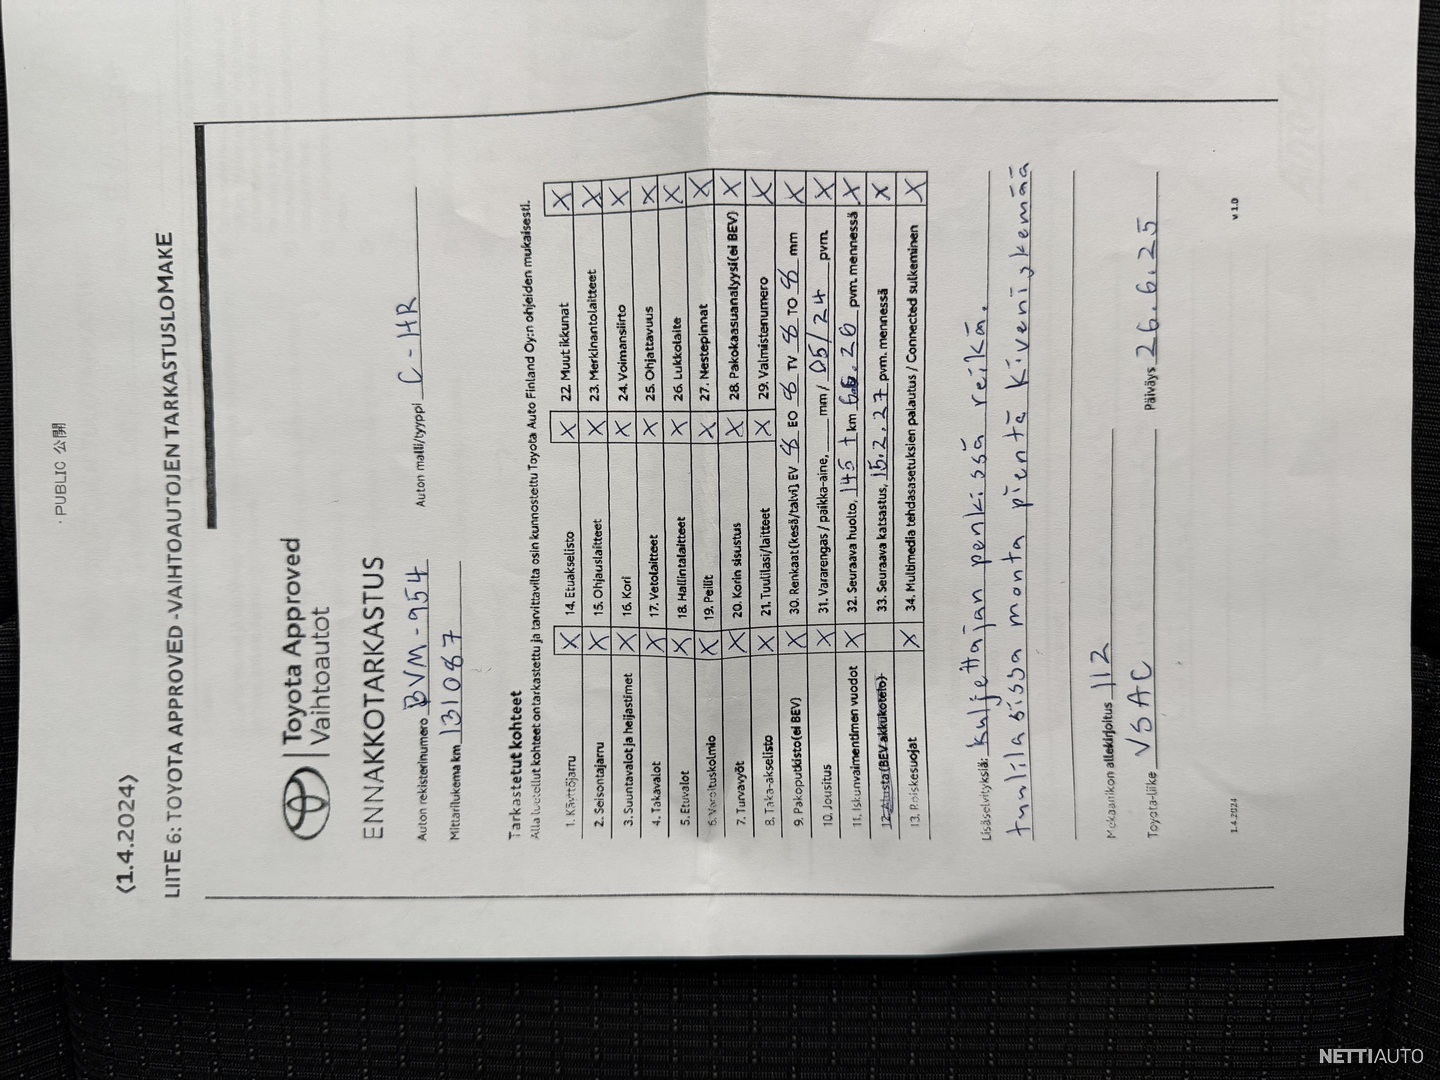 · PUBLIC 公開
⟨1.4.2024⟩
LIITE 6: TOYOTA APPROVED -VAIHTOAUTOJEN TARKASTUSLOMAKE
Toyota Approved
Vaihtoautot
ENNAKKOTARKASTUS
Auton rekisterinumero BVM-954 Auton malli/tyyppi C-HR
Mittarilukema km 131087
Tarkastetut kohteet
Alla luetellut kohteet on tarkastettu ja tarvittavilta osin kunnostettu Toyota Auto Finland Oy:n ohjeiden mukaisesti.
1. Käyttöjarru X 14. Etuakselisto X 22. Muut ikkunat X
2. Seisontajarru X 15. Ohjauslaitteet X 23. Merkinantolaitteet X
3. Suuntavalot ja heijastimet X 16. Kori X 24. Voimansiirto X
4. Takavalot X 17. Vetolaitteet X 25. Ohjattavuus X
5. Etuvalot X 18. Hallintalaitteet X 26. Lukkolaite X
6. Varoituskolmio X 19. Peilit X 27. Nestepinnat X
7. Turvavyöt X 20. Korin sisustus X 28. Pakokaasuanalyysi (ei BEV) X
8. Taka-akselisto X 21. Tuulilasi/laitteet X 29. Valmistenumero X
9. Pakoputkisto (ei BEV) X 30. Renkaat (kesä/talvi), EV 8 EO 8 TV 8 TO 8 mm X
10. Jousitus X 31. Vararengas / paikka-aine, mm / 05/24 pvm. X
11. Iskunvaimentimen vuodot X 32. Seuraava huolto, 145 t km 6.6.26 pvm. mennessä X
12. Alusta (BEV akkukotelo) 33. Seuraava katsastus, 15.2.27 pvm. mennessä X
13. Roiskesuojat X 34. Multimedia tehdasasetuksien palautus / Connected sulkeminen X
Lisäselvityksiä: Kuljettajan penkissä reikä.
tuulilasissa monta pientä kiveniskemää
Mekaanikon allekirjoitus 112
Toyota-liike VSAC Päiväys 26.6.25
1.4.2024 v 1.0
NETTIAUTO